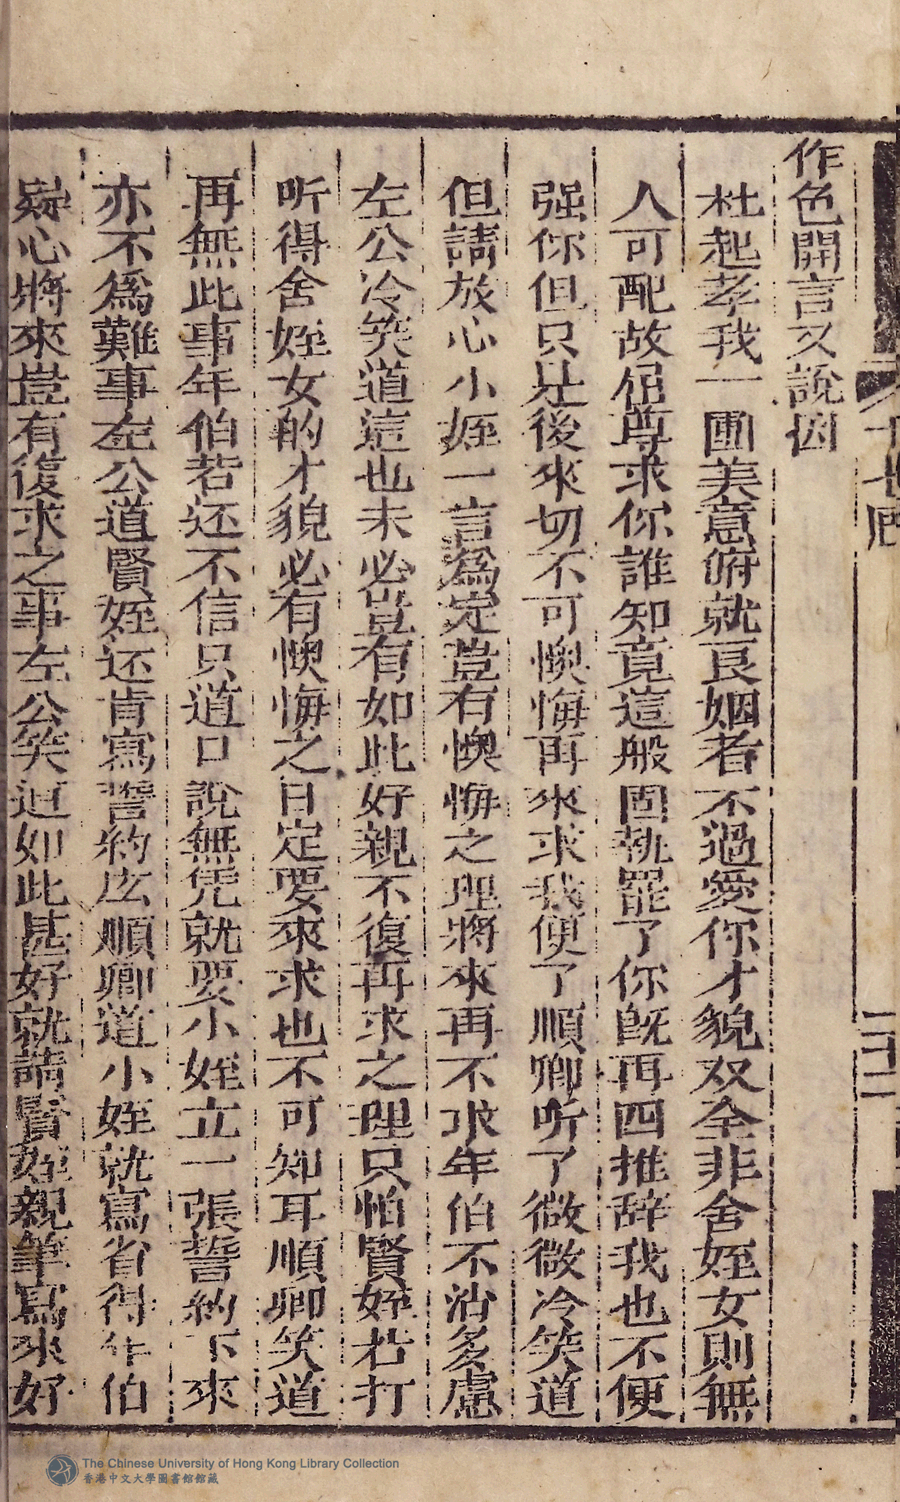 作色開言又說因
杜起孝我一團美意俯就良姻者不過愛你才貌双全非舍姪女則無
人可配故屈尊求你誰知竟這般固執罷了你既再四推辞我也不便
强你但只是後來切不可懊悔再來求我便了順卿听了微微冷笑道
但請放心小姪一言為定豈有懊悔之理將來再不求年伯不消多慮
左公冷笑道這也未必豈有如此好親不復再求之理只怕賢姪若打
听得舍姪女的才貌必有懊悔之日定要來求也不可知耳順卿笑道
再無此事年伯若还不信只道口說無凭就要小姪立一張誓約下來
亦不為難事左公道賢姪还肯寫誓約庅順卿道小姪就寫省得年伯
疑心將來豈有復求之事左公笑道如此甚好就請賢姪親筆寫來好
二十二
The Chinese University of Hong Kong Library Collection
香港中文大學圖書館館藏